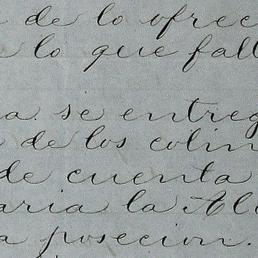 de lo ofrec
lo que fall
a se entreg
de los colin
de cuenta
aria la Al
a posecion.